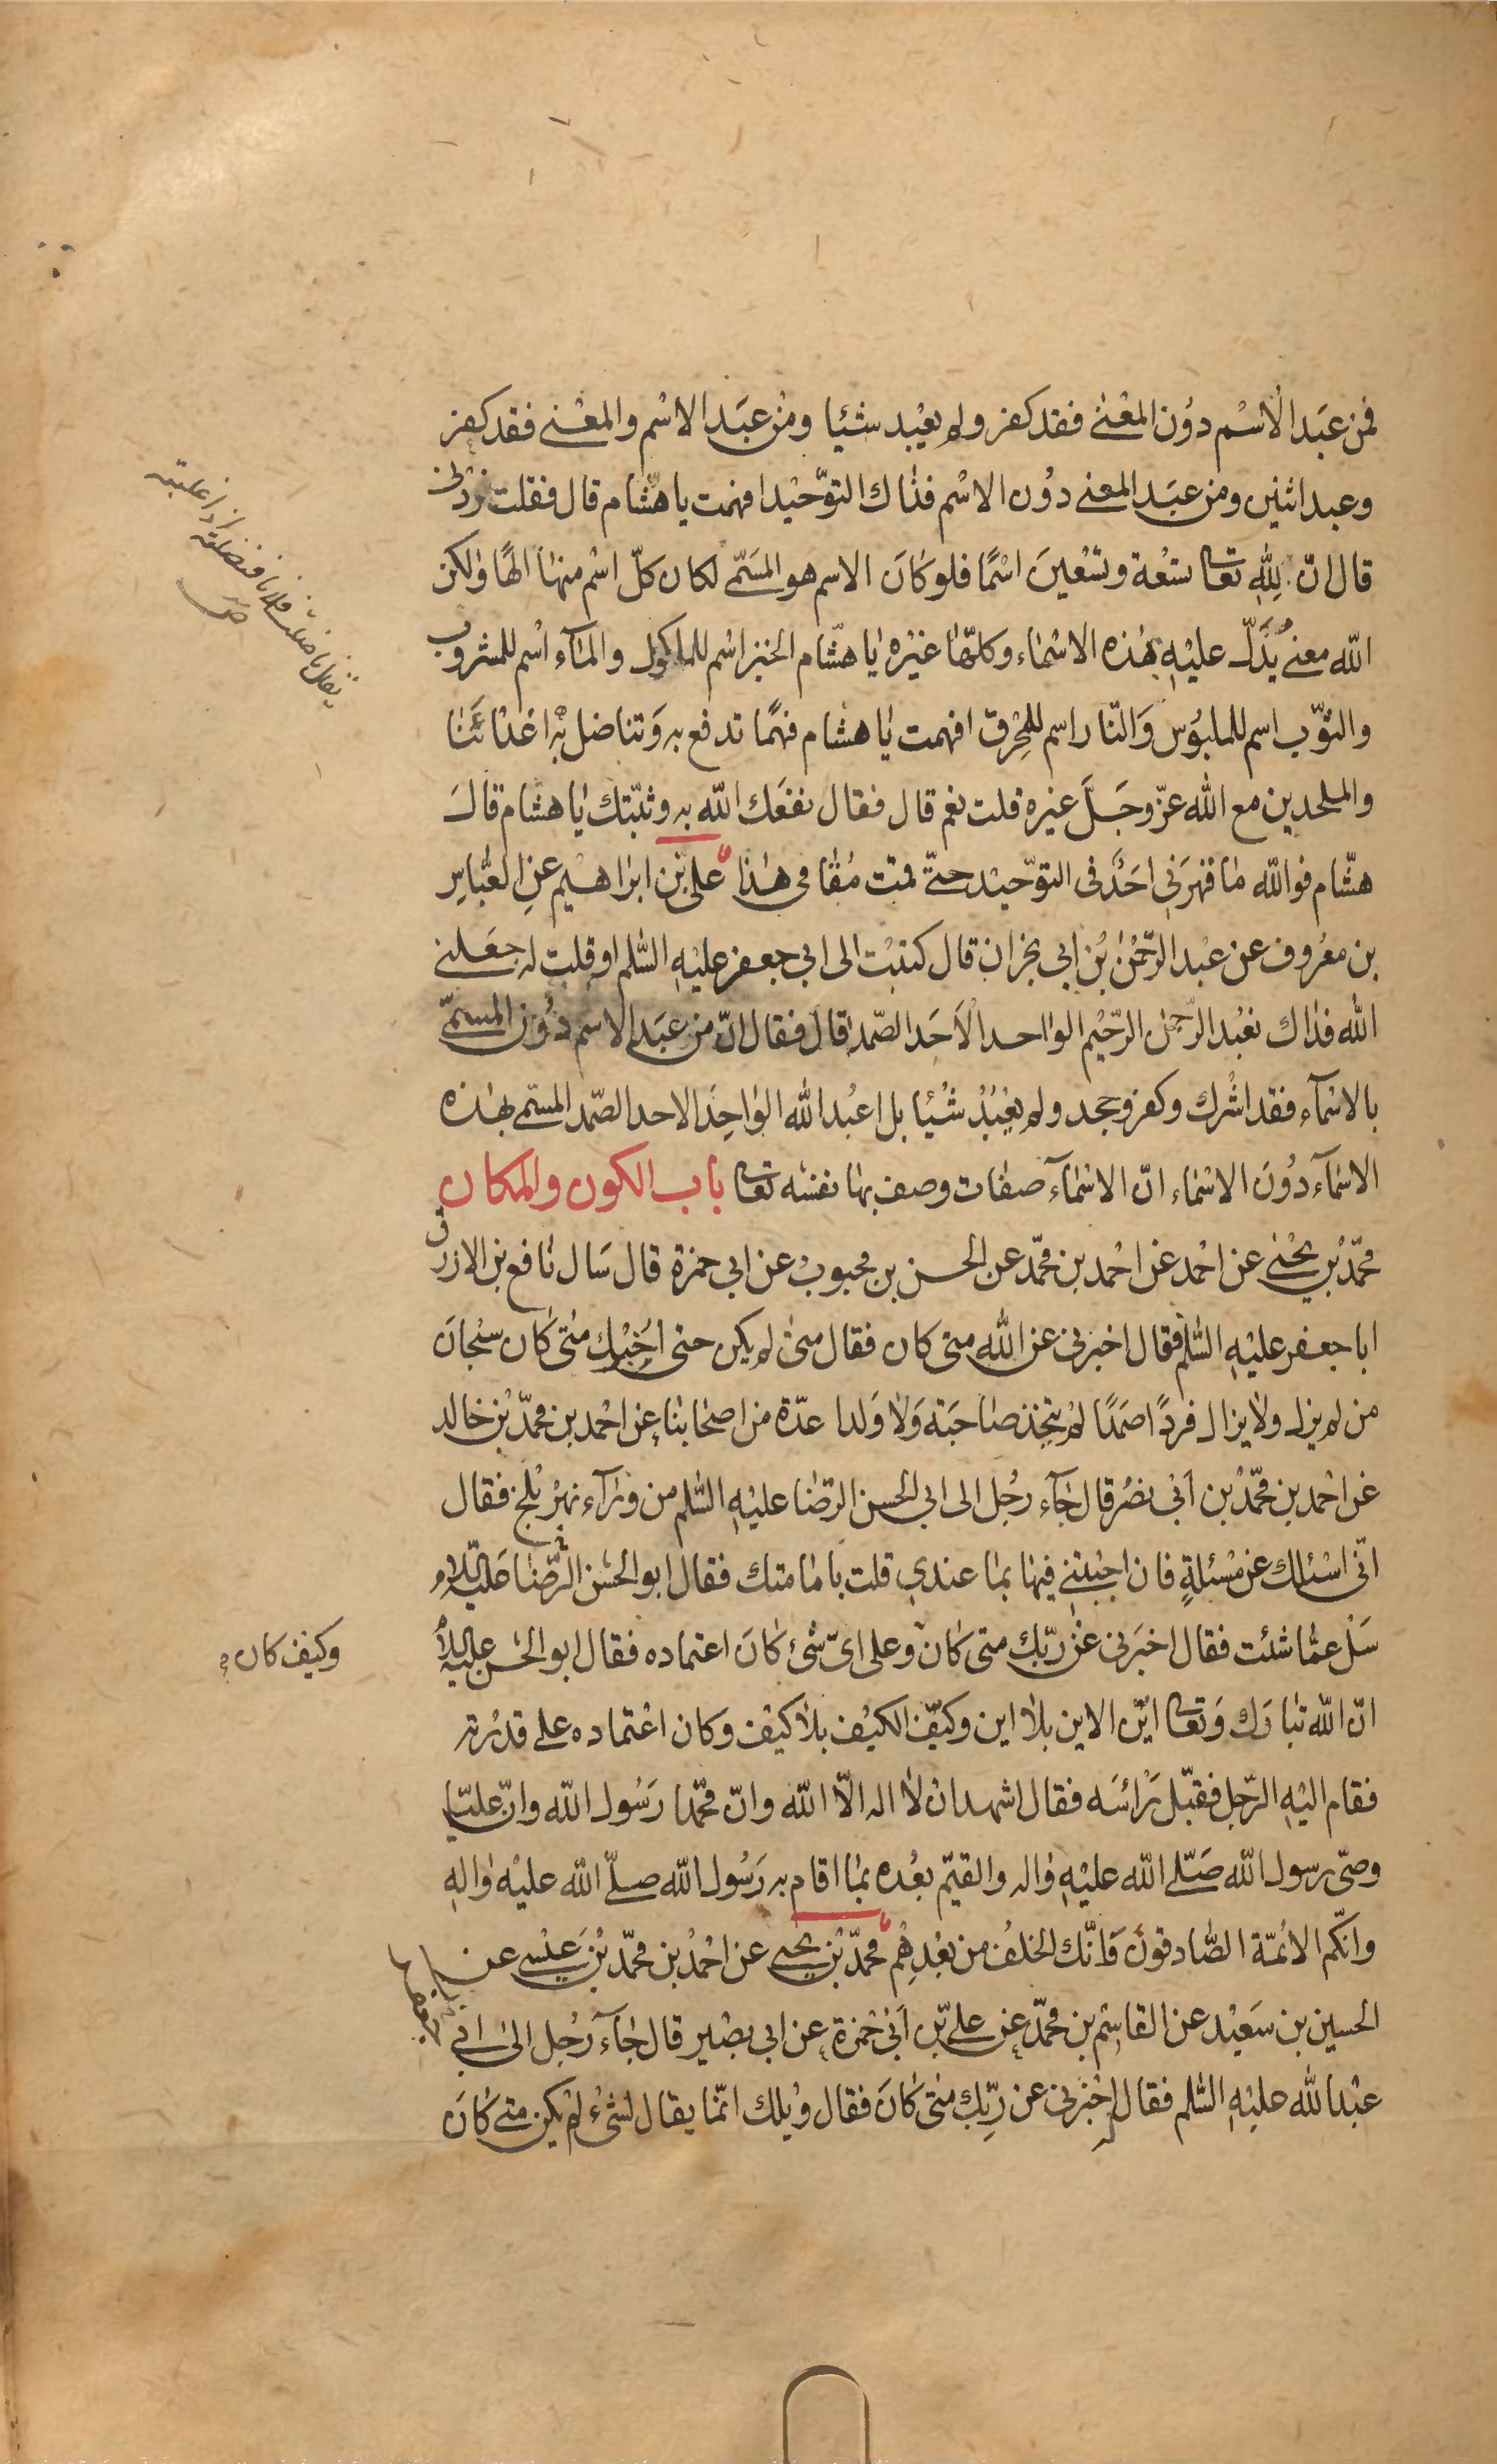 فمن عَبَد الاسْم دوُن المعْنى فقد كفر ولم يعْبد شيئا ومنْ عبَد الاسْم والمعْنى فقد كفر
وعبد اثنين ومن عبَد المعنى دوُن الاسْم فذاك التوّحيْد افهمت يا هشام قال فقلت زدنى
قال انّ لِلّهِ تعا تسْعة وتسْعينَ اسْمًا فلو كانَ الاسم هو المسَمّى لكان كلّ اسْم منها الهًا ولكن
اللّه معنى يُدَلّ عليْهِ بهٰذه الاسْماء وكلّها غيْره يا هشام الخبز اسْم للماكول والمآء اسْم للمشروب
والثوّب اسم للملبُوس وَالنّار اسم للمحْرِق افهمت يا هشام فهْمًا تدفع به وَتناضل بْه اعْدائَنا
والملحدين مع اللّه عزّ وجَلَّ غيره قلت نعم قال فقال نفعَك اللّه به وثبّتك يا هشام قالَ
هشّام فو اللّه ما قهرَنى احَدٌ فى التوّحيْد حتّى قمت مُقامى هٰذا على بْن ابراهيْم عنِ العّباسِ
بن معْروف عن عبْد الرّحمْن بْن ابي نجران قال كتبْت الى ابي جعفر عليْهِ السّلم او قلت له جعَلنى
اللّه فداك نعْبُد الرّحمن الرّحيْم الواحد الاَحَد الصّمد قال فقال انّ من عبَد الاسم دوُن المسمّى
بالاسْمآء فقد اشْرك وكفر وجحد ولم يعْبُدْ شْيئا بل اعْبُد اللّه الوٰاحِدَ الاحد الصّمد المسمّى بهٰذه
الاسْمآء دوُنَ الاسْماء انّ الاسْمآء صفات وصف بها نفسْه تعا باب الكون والمكان
محمّد بْن يحْيٰى عن احْمد عن احْمد بن محمّد عن الحسن بن محبوب عن ابي حمزة قال سَال نافع بن الازرق
ابا جعفر عليْهِ السّلم فقال اخبرنى عن اللّه متى كان فقال متى لم يكن حتى اُخْبرك متى كان سبْحانَ
من لم يزل ولا يزال فردًا صَمَدًا لمْ يتخِذ صاحبَة وَلا وَلدا عدّة من اصحابنا عن احْمد بن محمّد بْن خالد
عن احْمد بن محمّد بْن اَبى نصْر قال جآء رجُل الى ابي الحسن الرّضا عليْهِ السّلم من ورٰآء نهرْ بْلخ فقال
انّى اسْئلك عن مسْئلةٍ فان اجبْتنى فيها بما عندى قلت بامامتك فقال ابو الحسْن الرّضا عَليْه السّلام
سَلْ عمّا شئت فقال اخبَرنى عنْ ربّك متى كان وعلى اىّ شىْ كانَ اعتماده فقال ابو الحسْن عليْه السّلام
وكيْف كان
انّ اللّه تبارَك وَتعا ايّن الاين بلا اين وكيّف الكيْف بلا كيْف وكان اعْتماده على قدْرته
فقام اليْهِ الرّجل فقبّل رَأسَه فقال اشهد ان لا اله الاّ اللّه وانّ محمّدا رَسُول اللّه وانّ عليّا
وصىّ رسول اللّه صَلّى اللّه عليْهِ واله والقيّم بعْده بما اقام به رَسُول اللّه صلّى اللّه عليْه والهِ
وانّكم الائمّة الصّادقون وَانّك الخلف من بعْدِهْم محمّد بْن يحيى عن احْمد بن محمّد بْن عيْسى عن
الحسين بن سَعيْد عن القاسْم بن محمّد عن على بْن اَبى حْمزة عن ابي بصْير قال جآء رَجُل الى ابي
عبْد اللّه عليْهِ السّلم فقال له اخْبرنى عن ربّك متى كانَ فقال ويْلك انّما يقال لشىْء لمْ يكن متى كانَ